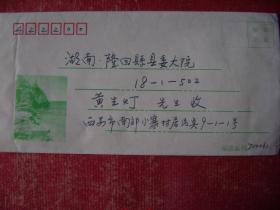 湖南·隆回县县委大院
18-1-502
黄生灯 先生收
西安市南郊小寨村居民央9-1-1号
邮政编码